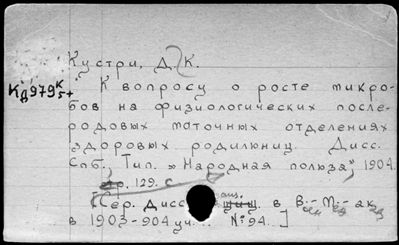 Кустри, Д. К.
Кд979 К/5+
К вопросу о росте микро-
бов на физиологических после-
родовых маточных отделениях
здоровых родилниц. Дисс.
Спб., Тип. „Народная польза", 1904.
129 с.
[Сер. Дисс. в В.- М.- ак.
в 1903-904 уч. № 94. ]